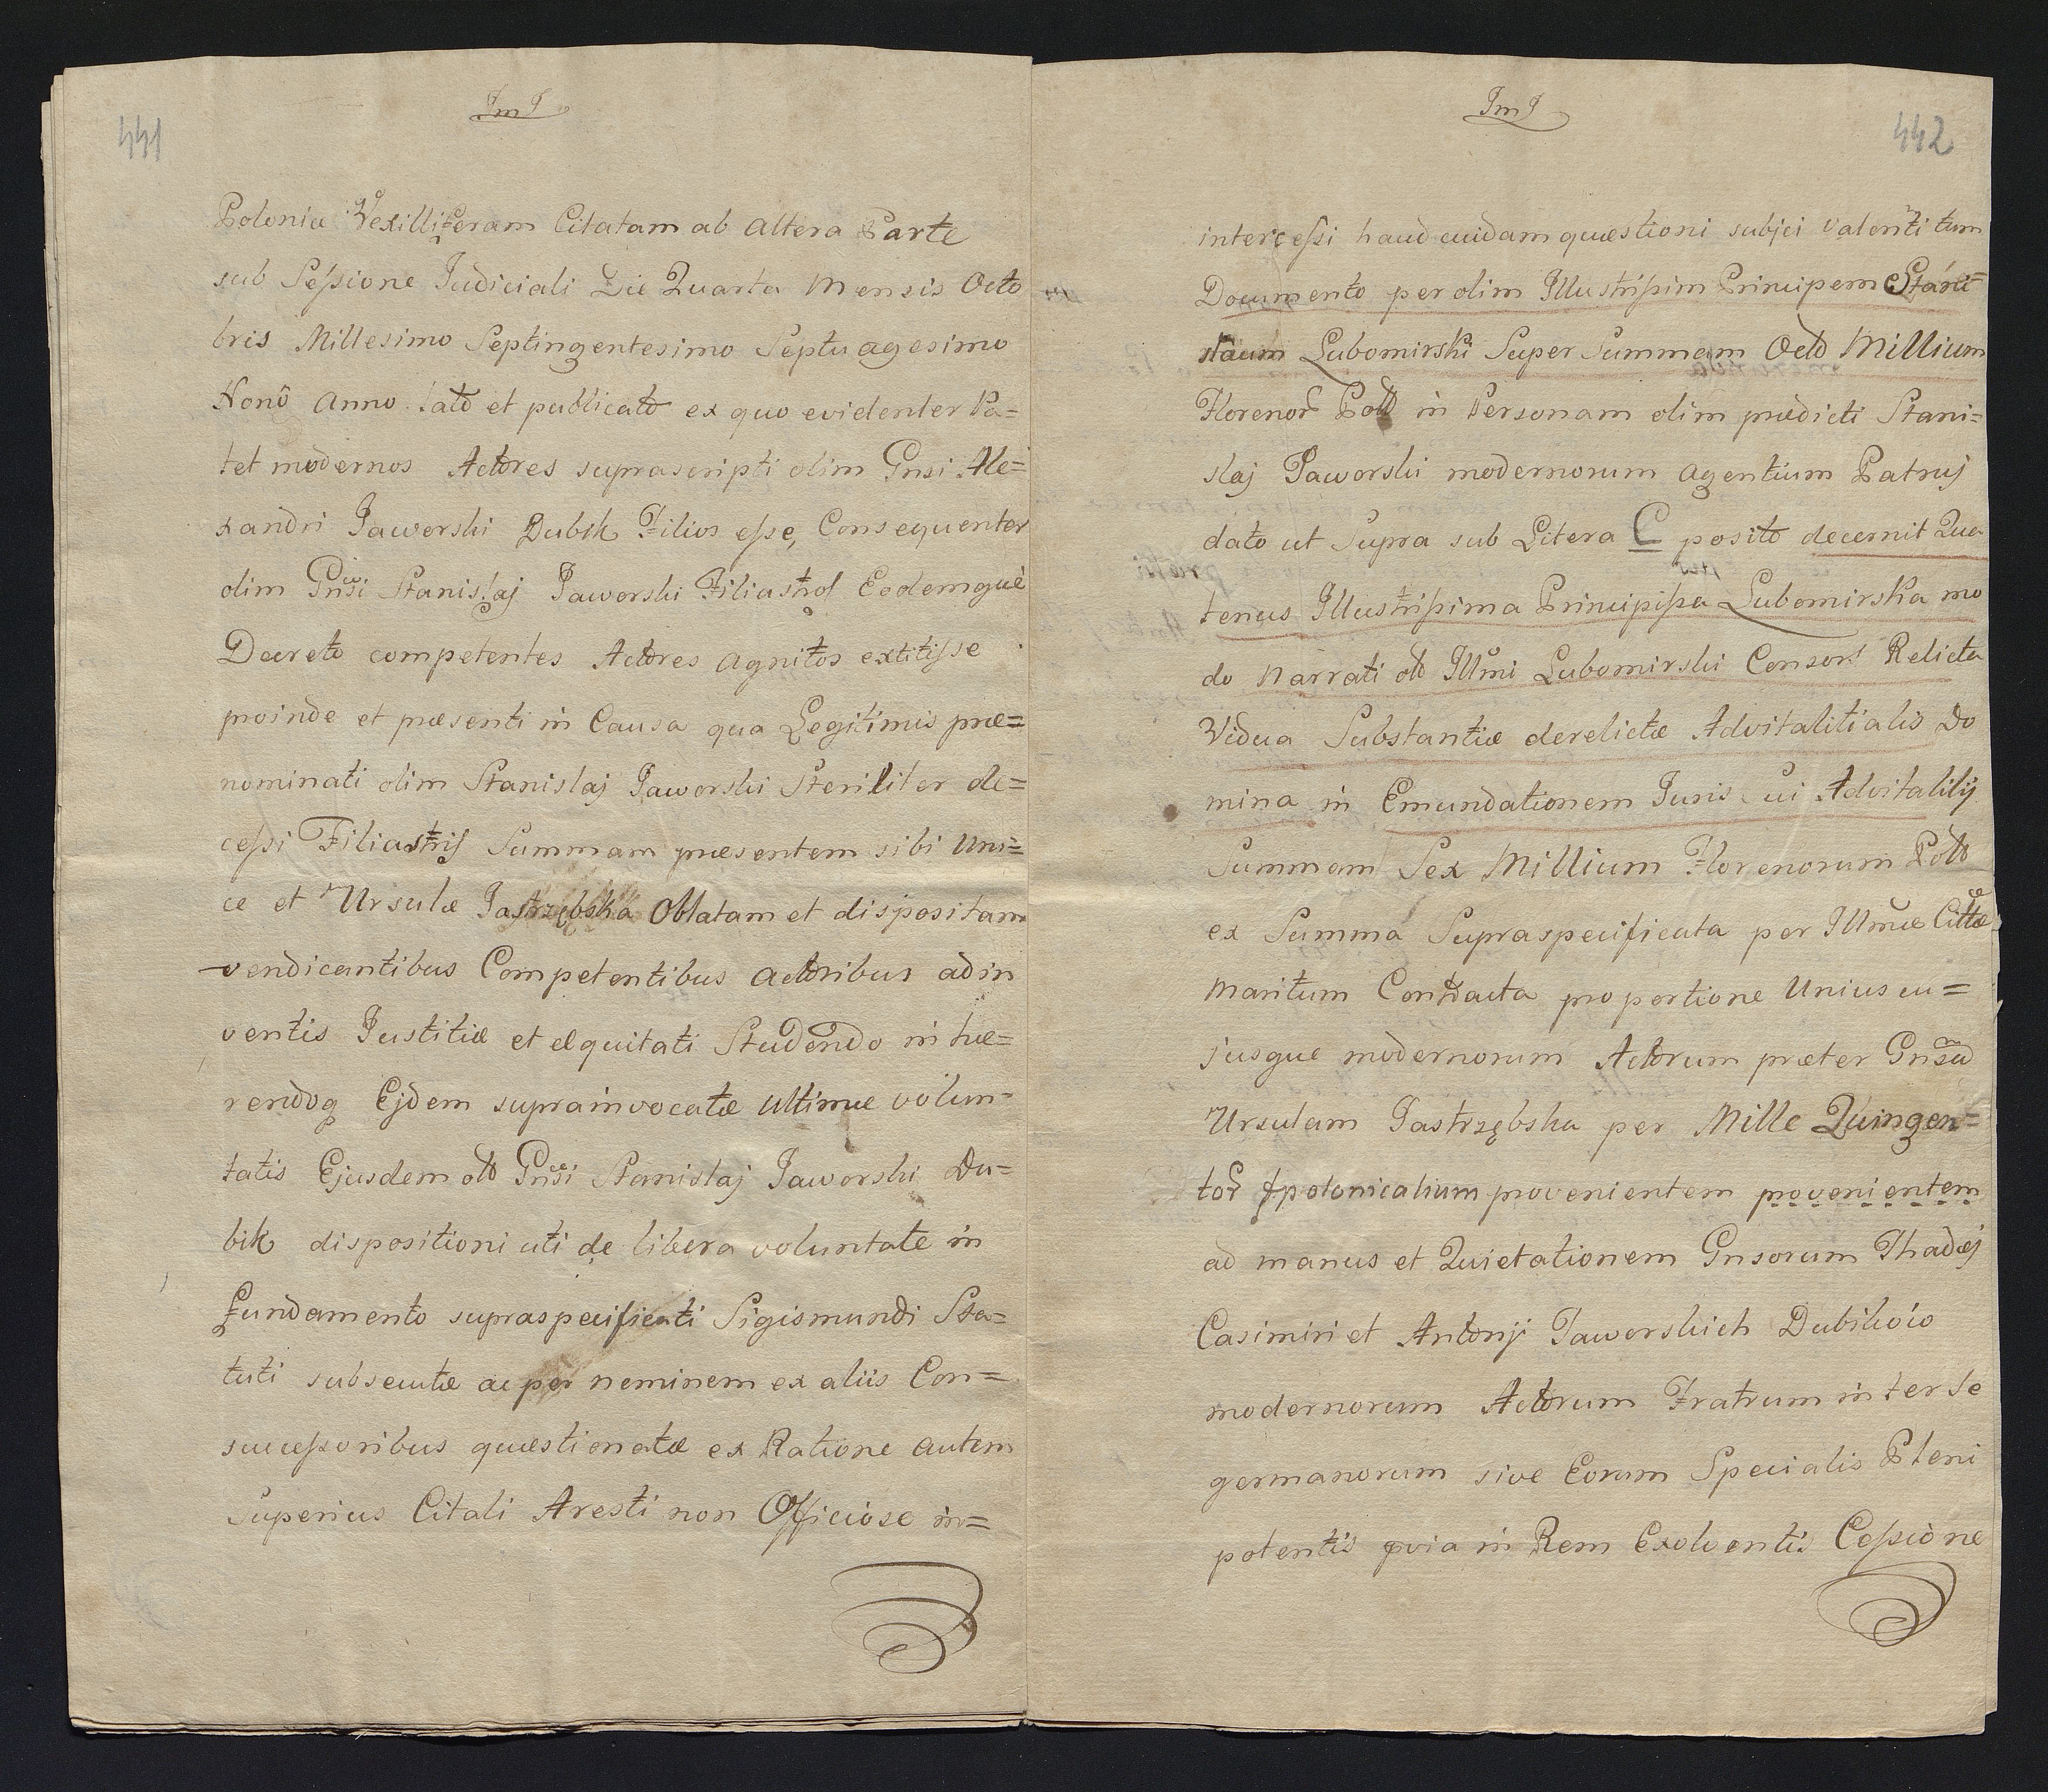 441
ImJ
Polonia Vexilliferam Citatam ab altera Parte
sub Sessione Judiciali Die Quarta Mensis Octo
bris Millesimo Septingentesimo Septuagesimo
Nonô Anno lato et publicato ex quo evidenter Pa=
tet modernos Actores suprascripti olim Gnsi Ale=
xandri Jaworski Dubik Filios esse, Consequenter
olim Gnsi Stanislaj Jaworski Filiastros Eodemquè
Decreto competentes Actores agnitos extitisse
proinde et præsenti in Causa qua Legitimis præ=
nominati olim Stanislaj Jaworski Steriliter de=
cessi Filiastris Summam præsentem sibi Uni=
ce et Ursulæ Jastrzębska Oblatam et dispositam
vendicantibus Competentibus actoribus adin
ventis Justitiæ et æquitati Studendo inhæ=
rendoq Ejdem suprainvocatæ ultimæ volun=
tatis Ejusdem olt Gnsi Stanislaj Jaworski Du=
bik dispositioni uti de libera voluntate in
fundamento supraspecificati Sigismundi Sta=
tuti subsecutæ ac per neminem ex aliis Con=
successoribus quæstionatæ ex Ratione autem
Superius Citati Aresti non Officiose in=
442
ImJ
intercessi haud cuidam quæstioni subjci valenti tum
Documento per olim Illustrissim Principem Stani=
slaum Lubomirski Super Summam Octo Millium
Florenor Poll in Personam olim prædicti Stani=
slaj Jaworski modernorum agentium Patruj
dato ut Supra sub Litera C posito decernit Qua
tenus Illustrissima Principissa Lubomirska mo
do Narrati olt Illmi Lubomirski Consors Relicta
Vidua Substantiæ derelictæ Advitalitialis Do
mina in Emundationem Juris sui Advitalitij
Summam Sex Millium Florenorum Poll
ex Summa Supraspecificata per Illmæ Cittæ
Maritum Contracta pro portione Unius cu=
jusque modernorum Actorum præter Gnsam
Ursulam Jastrzębska per Mille Quingen=
tor fpolonicalium provenientem provenientem
ad manus et Quietationem Gnsorum Thadæj
Casimiri et Antonij Jaworskich Dubikow
modernorum Actorum Fratrum inter se
germanorum sive Eorum Specialis Pleni
potentis qvia in Rem Exolventis Cessione